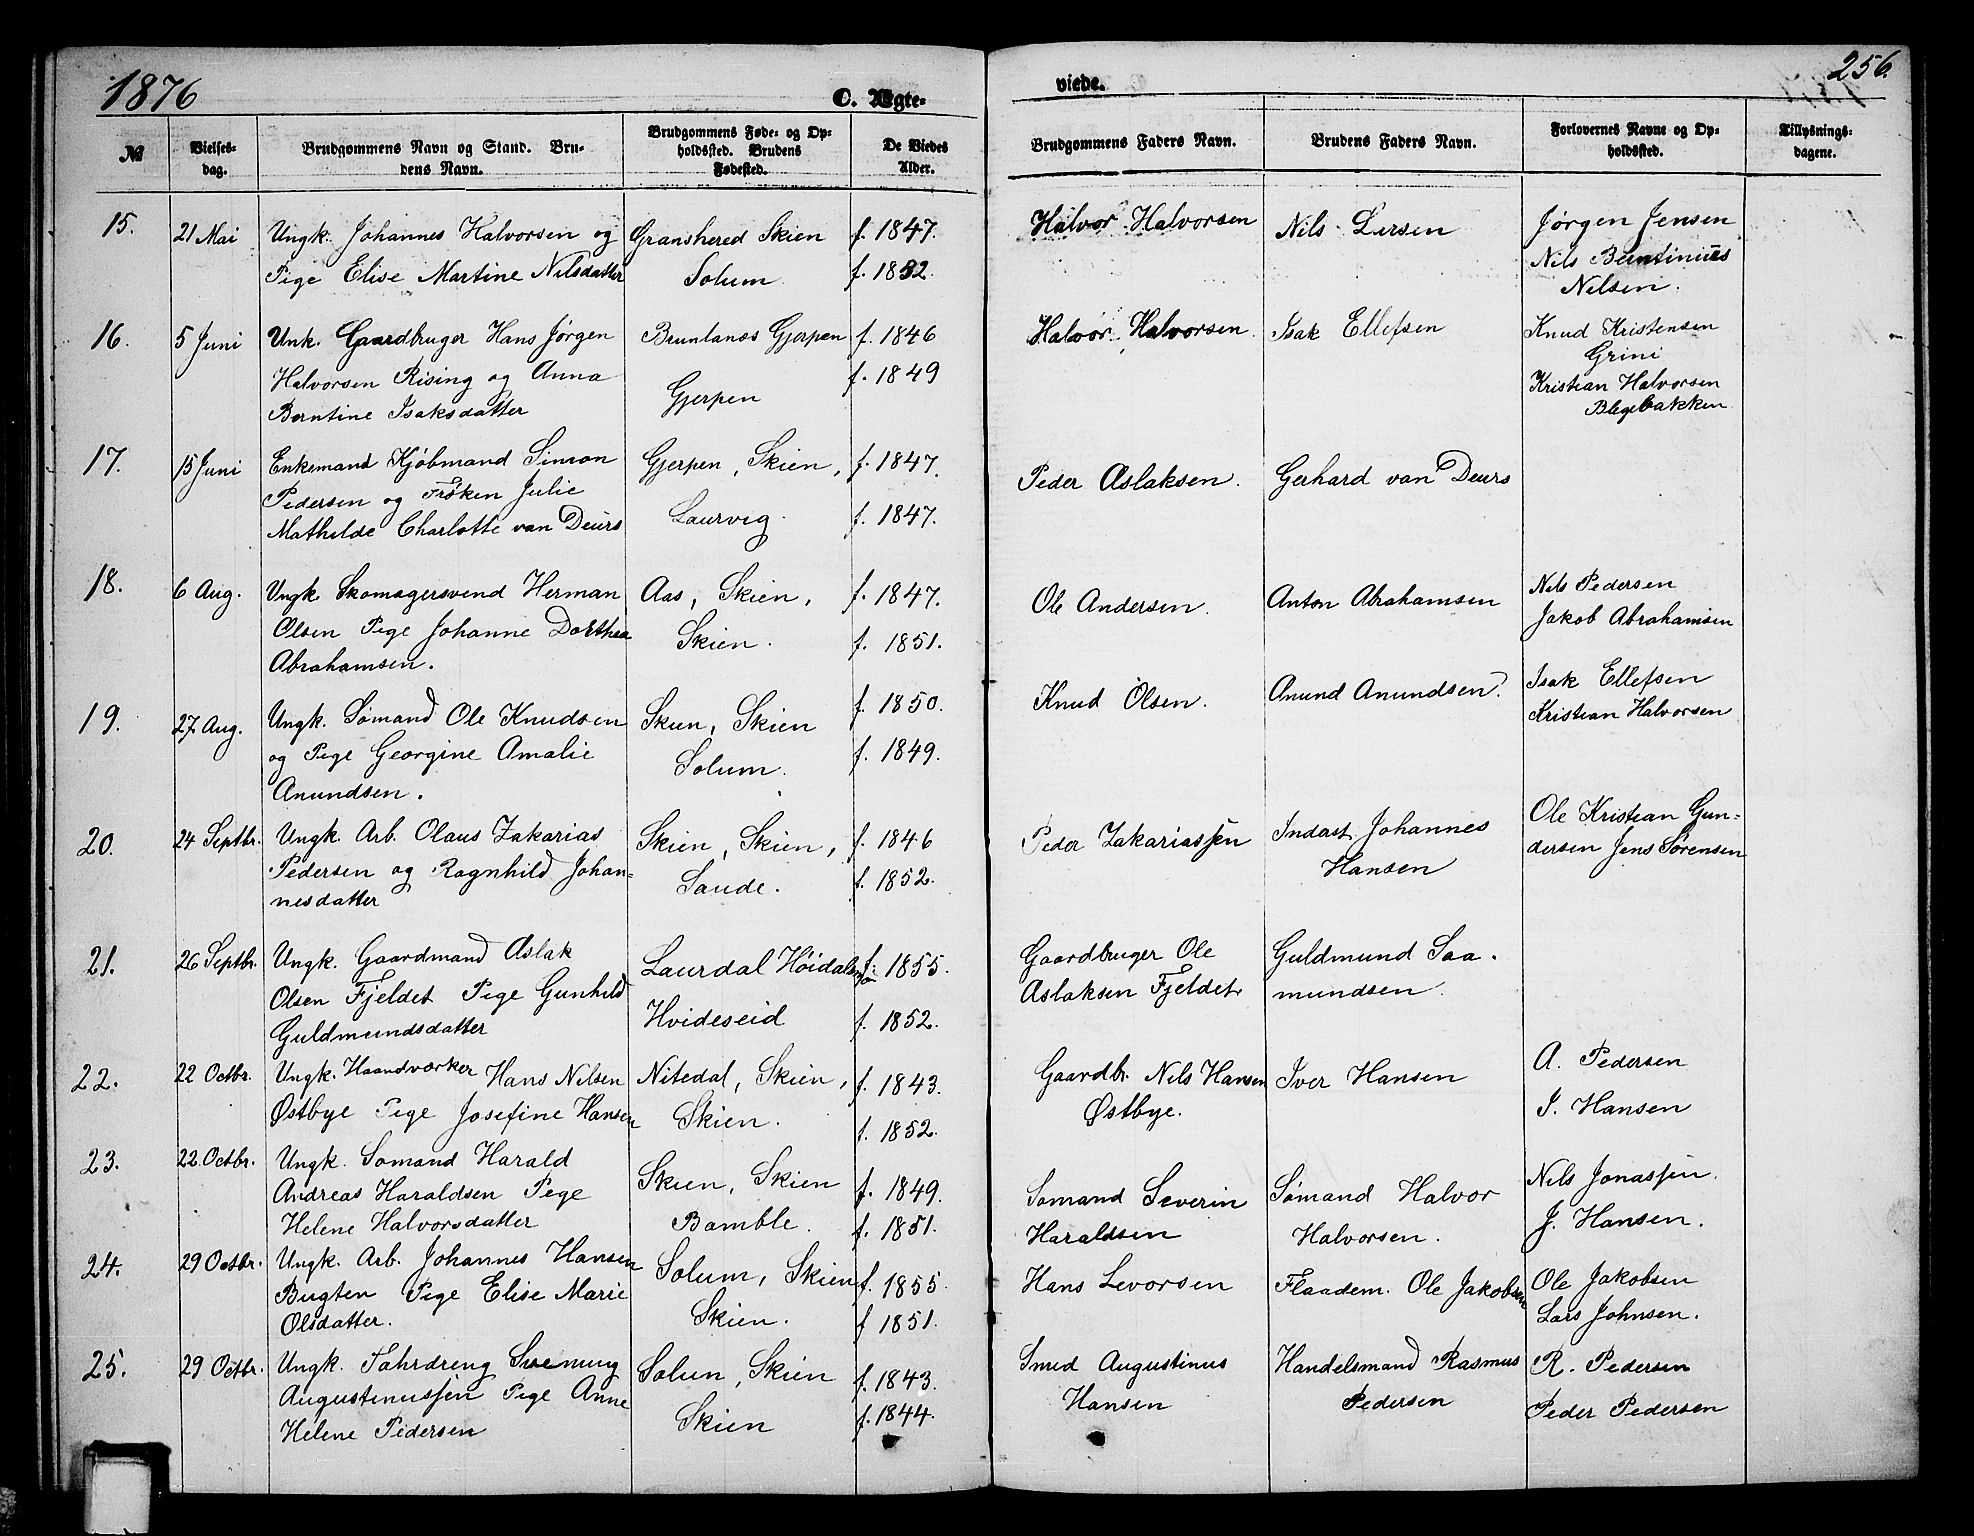 1876
C. Ægte-
viede.
256.
№
Vielses-
dag.
Brudgommens Navn og Stand. Bru-
dens Navn.
Brudgommens Føde- og Op-
holdssted. Brudens
Fødested.
De Viedes
Alder.
Brudgommens Faders Navn.
Brudens Faders Navn.
Forlovernes Navne og Op-
holdssted.
Tillysnings-
dagene.
15.
21 Mai
Ungk. Johannes Halvorsen og
Pige Elise Martine Nilsdatter
Granshered Skien
Solum
f. 1847.
f. 1832.
Halvor Halvorsen
Nils
Jørgen Jensen
Nils
Nelsen.
16.
5 Juni
Unk. Gaardbruger Hans Jørgen
Halvorsen Rising og Anna
Berntine Isaksdatter
Brunlanæs Gjerpen
Gjerpen
f. 1846
f. 1849
Halvor Halvorsen.
Isak Ellefsen
Knud Kristensen
Grini
Kristian Halvorsen
Blegebakken
17.
15 Juni
Enkemand Kjøbmand Simon
Pedersen og Frøken Julie
Mathilde Charlotte van Deurs
Gjerpen, Skien,
Laurvig.
f. 1847.
f. 1847.
Peder Aslaksen.
Gerhard van Deurs
18.
6 Aug.
Ungk. Skomagersvend Herman
Olsen Pige Johanne Dorthea
Abrahamsen.
Aas, Skien,
Skien.
f. 1847.
f. 1851.
Ole Andersen.
Anton Abrahamsen
Nils Pedersen
Jakob Abrahamsen
19.
27 Aug.
Ungk. Sømand Ole Knudsen
og Pige Georgine Amalie
Anundsen.
Skun, Skien
Solum.
f. 1850.
f. 1849.
Knud Olsen.
Anund Anundsen.
Isak Ellefsen
Kristian Halvorsen
20.
24 Septbr.
Ungk. Arb. Olaus Zakarias
Pedersen og Ragnhild Johan-
nesdatter
Skien, Skien,
Saude.
f. 1846
f. 1852.
Peder Zakariassen
Indast Johannes
Hansen
Ole Kristian Gun-
dersen Jens Sørensen
21.
26 Septbr.
Ungk. Gaardmand Aslak
Olsen Fjeldet Pige Gunhild
Guldmundsdatter
Laurdal Høidals
Hvideseid
f. 1855.
f. 1852.
Gaardbruger Ole
Aslaksen Fjeldet
Guldmund Saa-
mundsen.
22.
22 Octbr.
Ungk. Haandværker Hans Nilsen
Østbye Pige Josefine Hansen
Nitedal, Skien,
Skien.
f. 1843.
f. 1852.
Gaardbr. Nils Hansen
Østbye.
Iver Hansen
A. Pedersen
I. Hansen
23.
22. Octbr.
Ungk. Somand Harald
Andreas Haraldsen Pige
Helene Halvorsdatter
Skien, Skien
Bamble.
f. 1849.
f. 1851.
Somand Severin
Haraldsen
Sømand Halvor
Halvorsen.
Nils Jonassen.
J. Hansen.
24.
29 Octbr.
Ungk. Arb. Johannes Hansen
Bugten Pige Elise Marie
Olsdatter.
Solum, Skien
Skien.
f. 1855.
f. 1851.
Hans Levorsen
Flaadem. Ole Jakobsen
Ole Jakobsen
Lars Johnsen.
25.
29 Octbr.
Ungk. Fahrdreng Svenung
Augustinussen Pige Anne
Helene Pedersen
Solun, Skien
Skien
f. 1843.
f. 1844.
Smed Augustinus
Hansen
Handelsmand Rasmus
Pedersen
R. Pedersen
Peder Pedersen